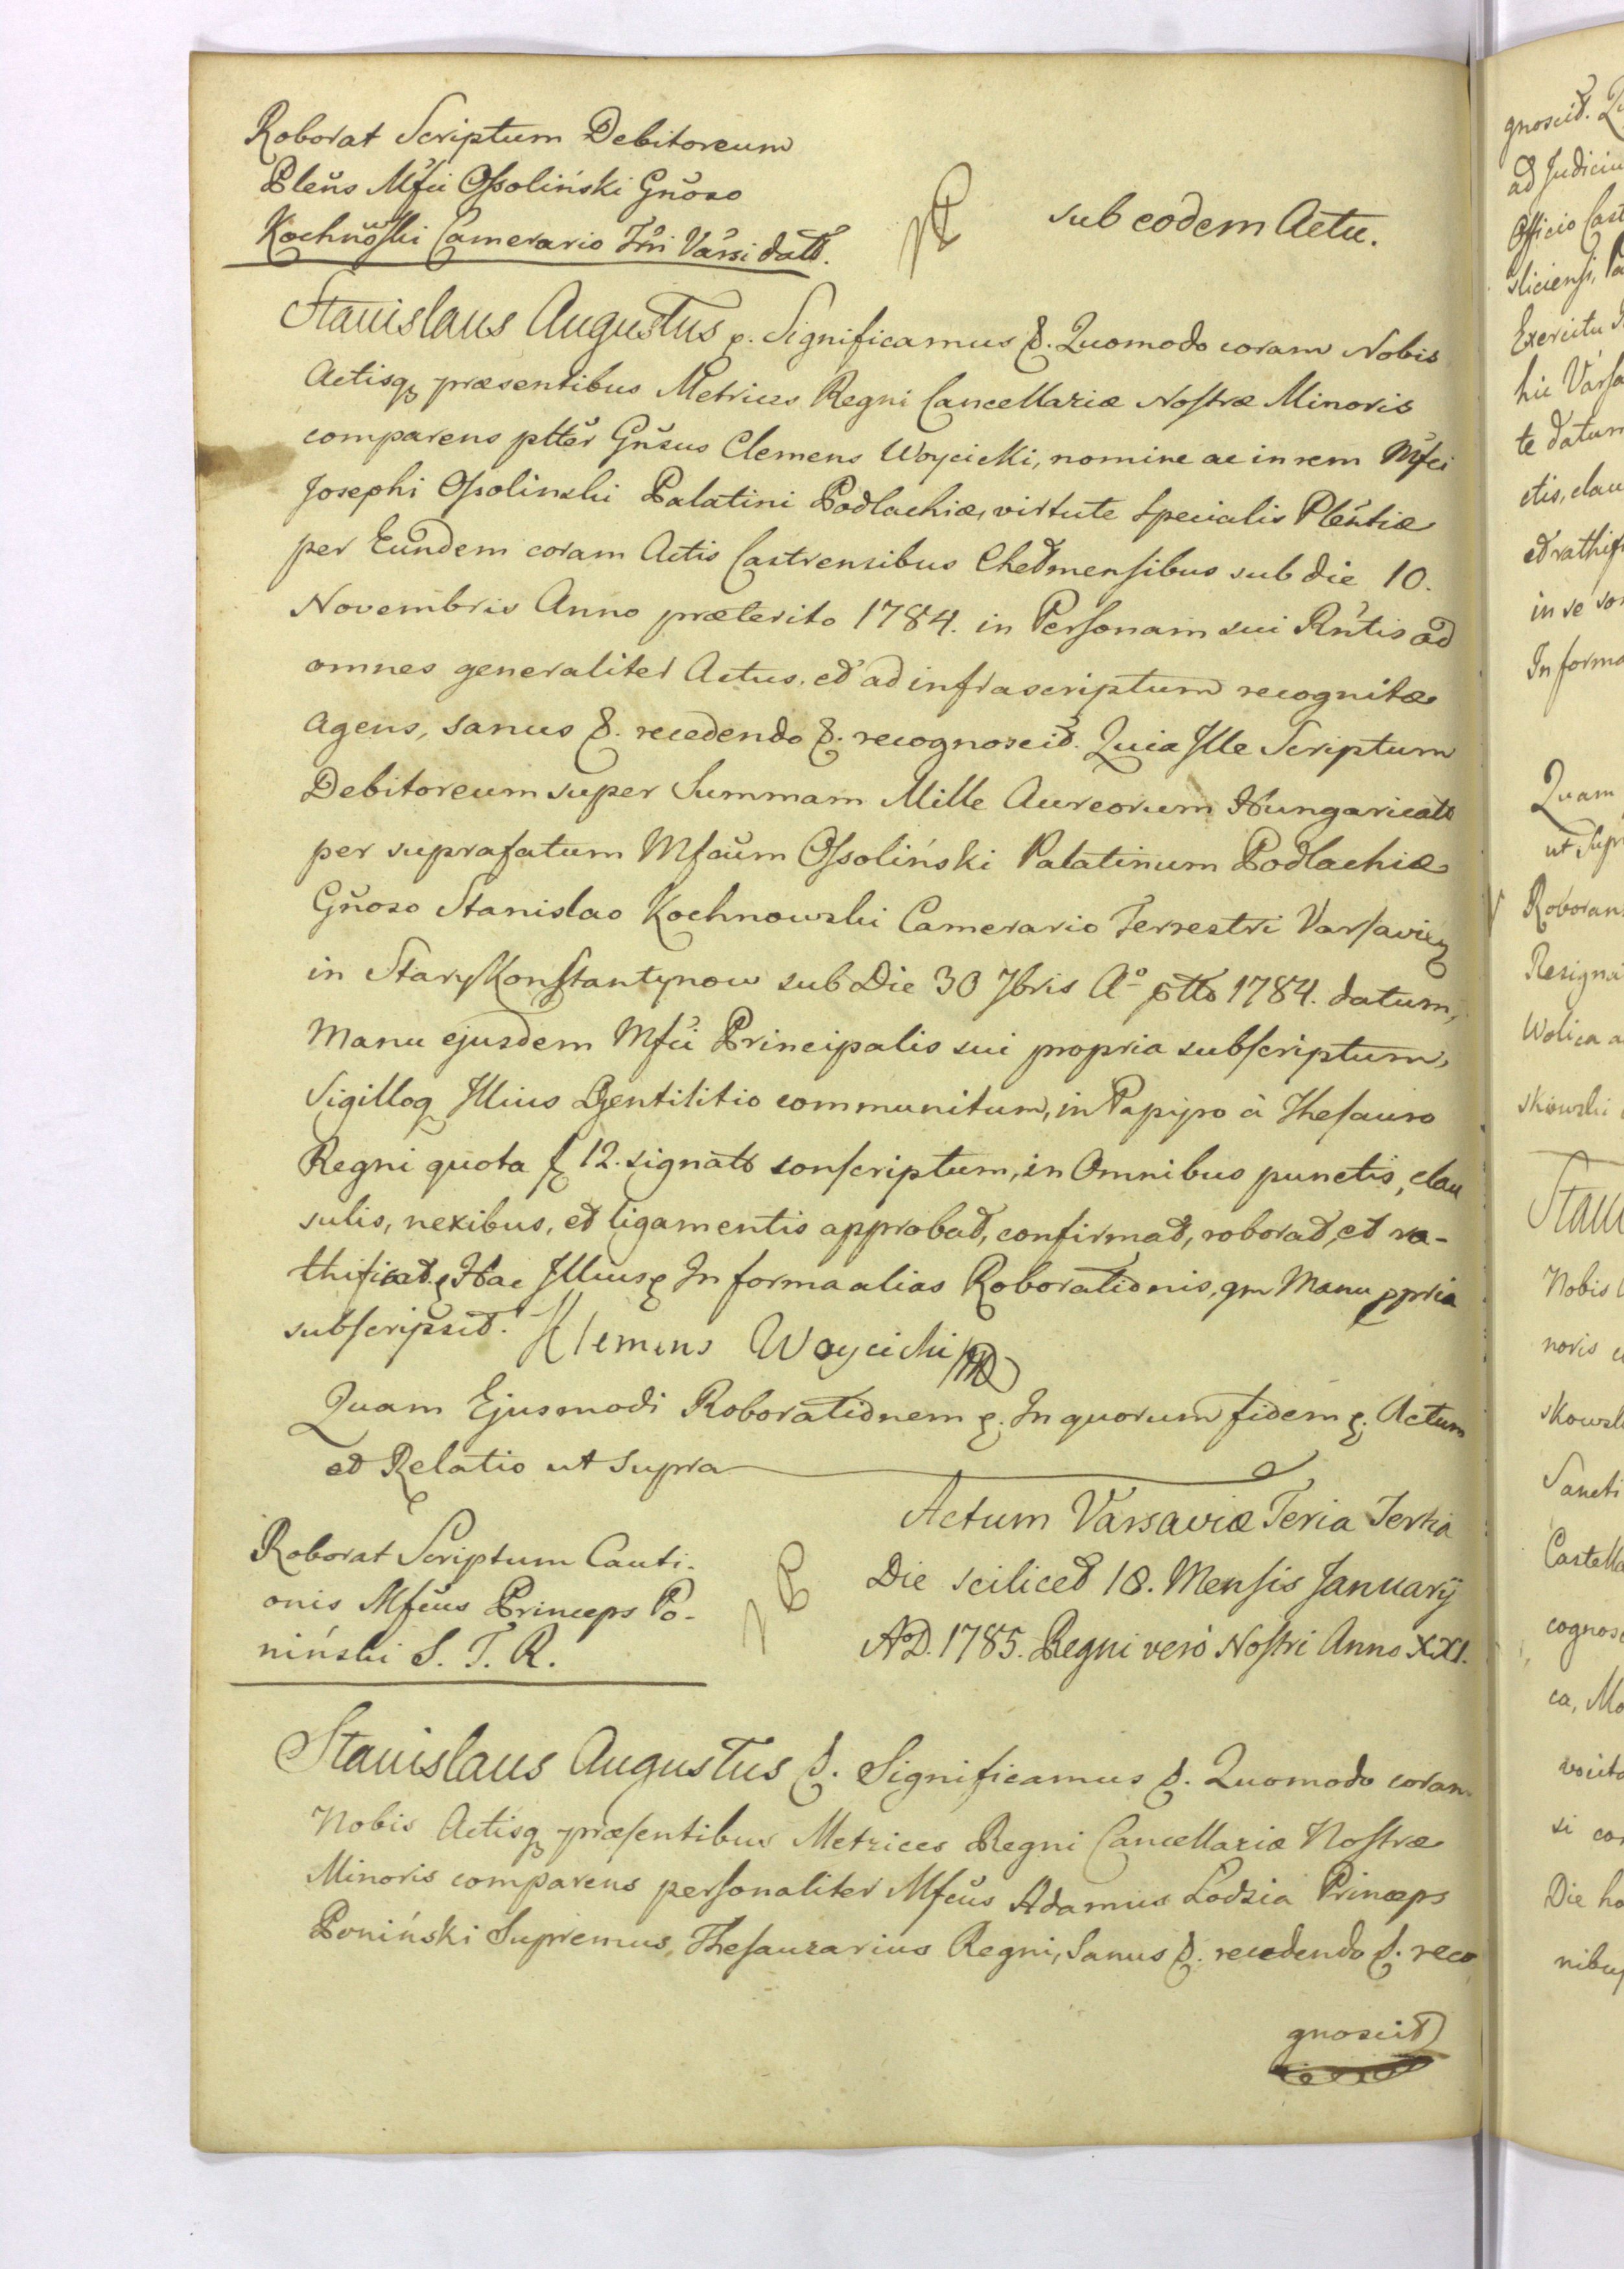 Roborat Scriptum Debitoreum
Pleñs Mfci Ossoliński Gñoso
Kochnowski Camerario Tri Varsi datt.
sub eodem Actu.
Stanislaus Augustus &. Significamus &. Quomodo coram Nobis
Actisq præsentibus Metrices Regni Cancellariæ Nostræ Minoris
comparens ptter Gñsus Clemens Woycicki, nomine ac in rem Mfci
Josephi Ossolinski Palatini Podlachiæ, virtute specialis Plentiæ
per Eundem coram Actis Castrensibus Chelmensibus sub die 10.
Novembris Anno præterito 1784. in Personam sui Rntis ad
omnes generaliter Actus, et ad infrascriptum recognitæ
Agens, sanus &. recedendo &. recognoscit. Quia Ille Scriptum
Debitoreum super Summam Mille Aureorum Hungaricatt
per suprafatum Mfcum Ossoliński Palatinum Podlachiæ
Gñoso Stanislao Kochnowski Camerario Terrestri Varsavien
in Stary Konstantynow sub Die 30 7bris Aº ptto 1784. datum,
Manu ejusdem Mfci Principalis sui propria subscriptum,
Sigilloq Illius Gentilitio communitum, in Papyro à Thesauro
Regni quota f 12. signato conscriptum, in Omnibus punctis, clau
sulis, nexibus, et ligamentis approbat, confirmat, roborat, et ra-
thificat & Hac Illius & In forma alias Roborationis, qm Manu ppria
subscripsit. Klemens Woycicki mp
Quam Ejusmodi Roborationem &. In quorum fidem &. Actum
et Relatio ut supra
Roborat Scriptum Cauti-
onis Mfcus Princeps Po-
niński S. T. R.
Actum Varsaviæ Feria Tertia
Die scilicet 18. Mensis Januarÿ
A.D. 1785. Regni vero Nostri Anno XXI.
Stanislaus Augustus &. Significamus &. Quomodo coram
Nobis Actisq præsentibus Metrices Regni Cancellariæ Nostræ
Minoris comparens personaliter Mfcus Adamus Lodzia Princeps
Poniński Supremus Thesaurarius Regni, Sanus &. recedendo &. reco
gnoscit
gnoscit.
ad Judiciu
Officio Cast
sliciensi, Pa
Exercitu
hic Varsa
te datum
ctis, clau
et rathif
in se
In forma
Quam
ut Supr
Roboran
Resigna
Wolica a
skowski
Stani
Nobis
noris
skowsk
Sancti
Castella
cognosc
ca, Mo
vocito
si co
Die ho
nibus